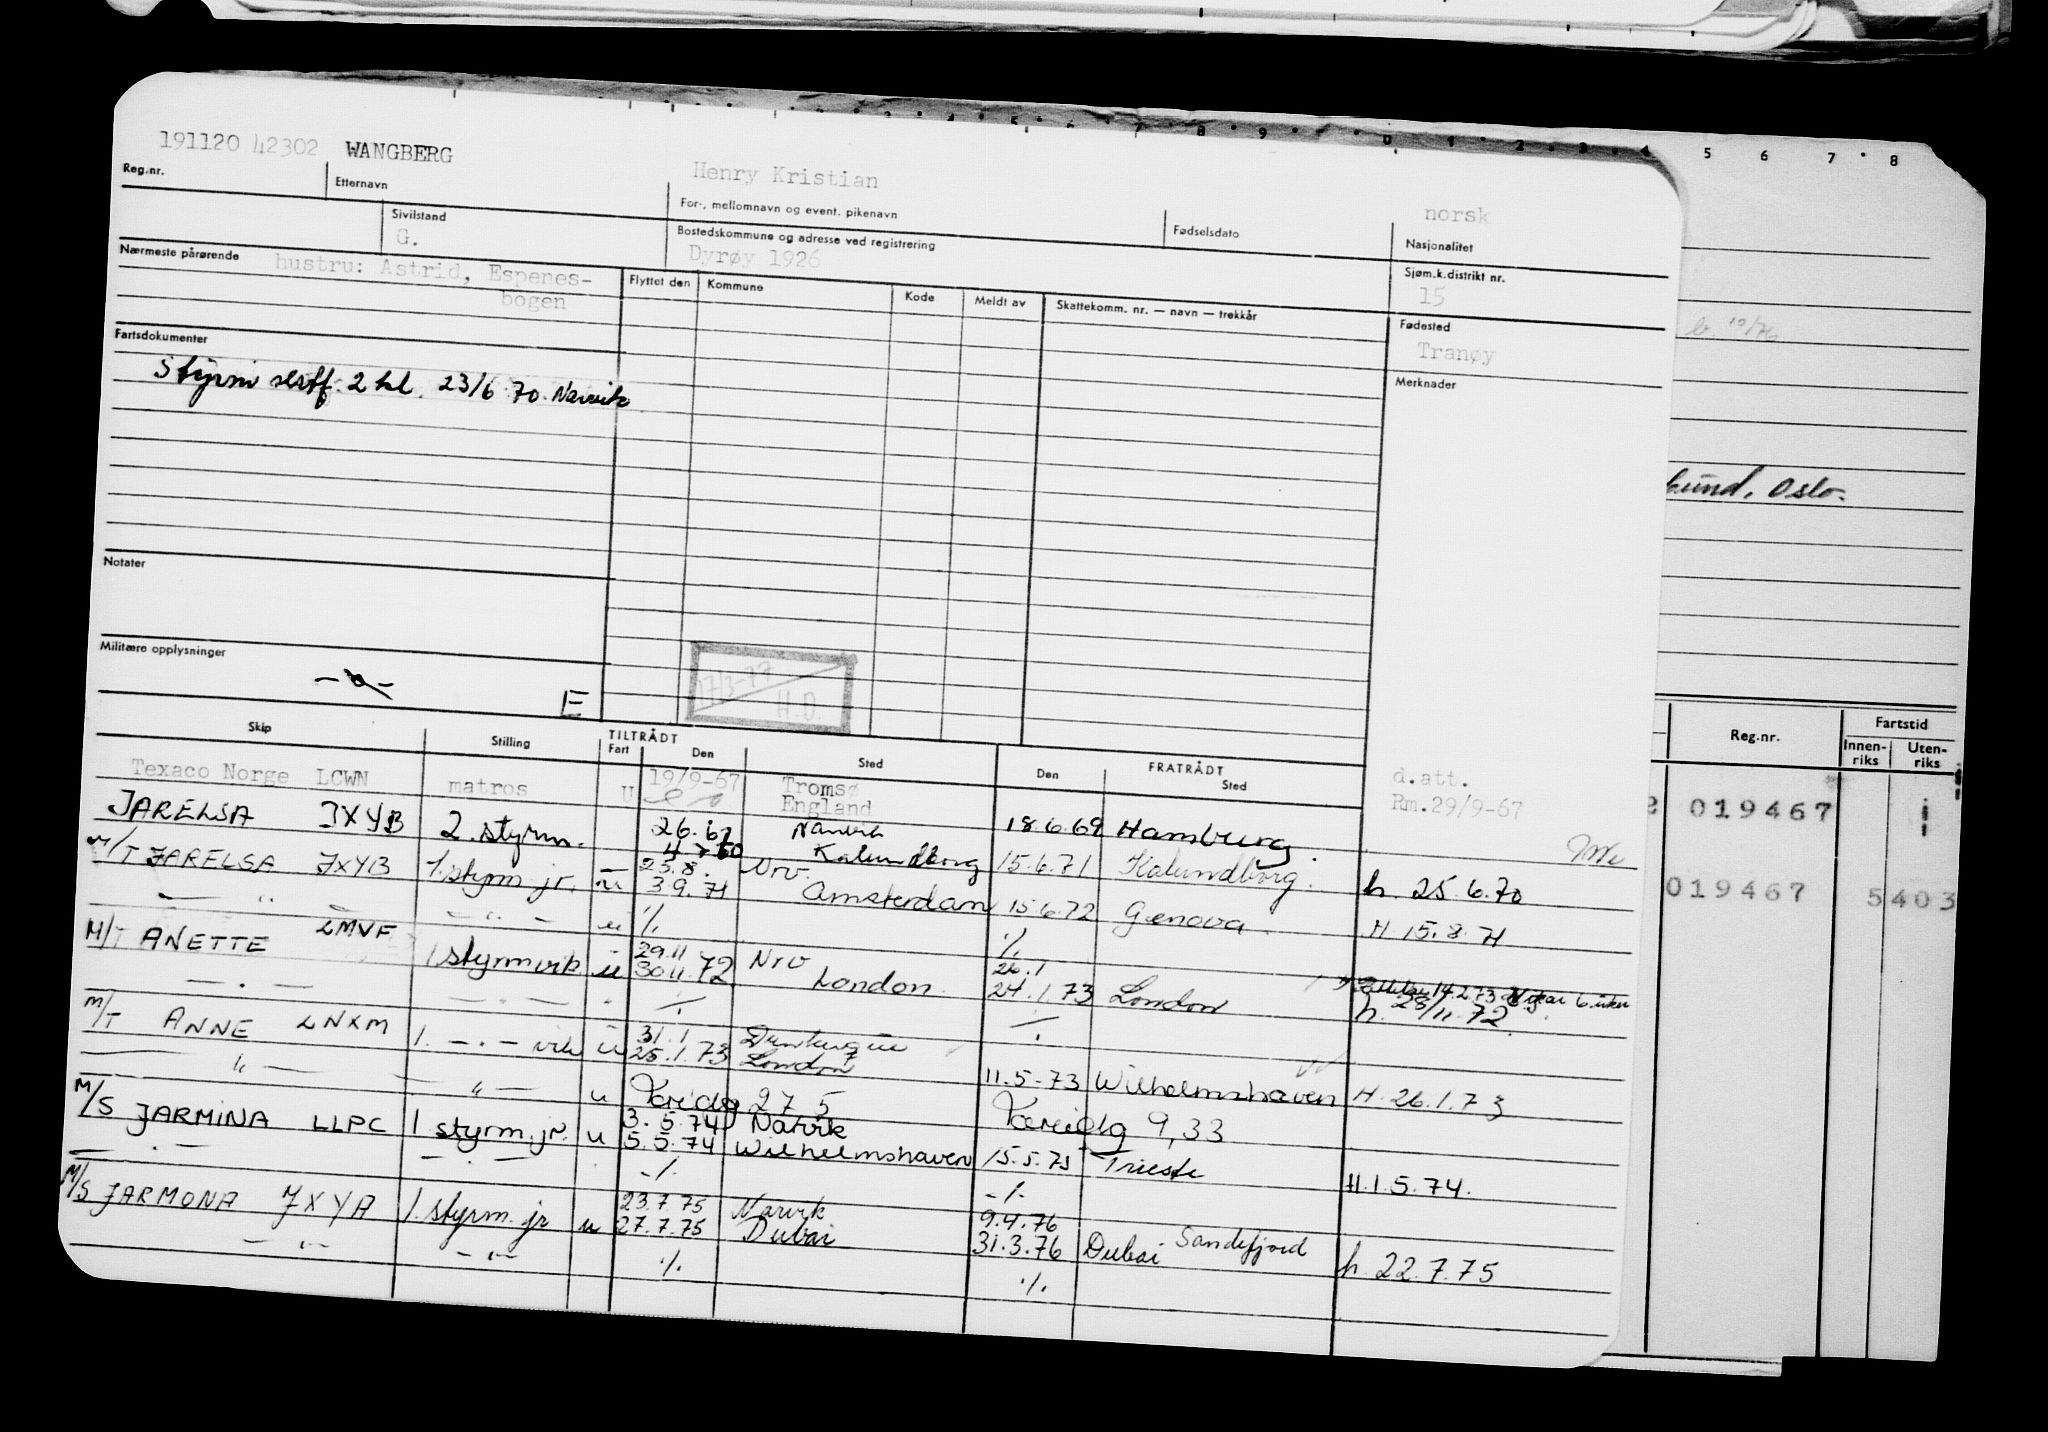 3 4 5 6 7 8 9 0 1 2 3 4 5 6 7 8
191120 42302 WANGBERG Henry Kristian norsk
Reg.nr. Etternavn For-, mellomnavn og event. pikenavn Fødselsdato Nasjonalitet
Sivilstand Bostedskommune og adresse ved registrering Sjøm.k.distrikt nr.
G. Dyrøy 1926 15
Nærmeste pårørende hustru: Astrid, Espenes-
bogen
Flyttet den Kommune Kode Meldt av Skattekomm. nr. — navn — trekkår Fødested
Tranøy
Fartsdokumenter Merknader
Styrm sert. 2 kl. 23/6 70. Narvik
kund, Oslo.
Notater
Militære opplysninger
E
17/3-77
H.O.
Skip Stilling TILTRÅDT FRATRÅDT
Fart Den Sted Den Sted
Reg.nr. Fartstid
Innen-
riks
Uten-
riks
Texaco Norge LCWN matros U 19/9-67 Tromsø d.att.
England Rm.29/9-67
019467
JARELSA JXYB 2. styrm. Narvik 18.6.69 Hamburg.
Kalundborg
M/T JARELSA JXYB 1. styrm. jr. u 23.8. Nrv. 15.6.71 Kalundborg. h. 25.6.70
3.9.71 Amsterdam 15.6.72 Genova. H 15.8.71
019467 5403
— " — — " — u ·/.
M/T ANETTE LMVF 1 styrm vik u 29.11 Nrv ·/.
30.11.72 London 26.1
24.1.73 London
14.2.73
h. 28/11.72.
— " — — " — ·/. ·/.
M/T ANNE LNXM 1. — " — vik u 31.1 Dunkerque
25.1.73 London 11.5.73 Wilhelmshaven H. 26.1.73
— " — — " — u Færidg 275 Færeidg 9,33
M/S JARMINA LLPC 1 styrm. jr. u 3.5.74 Narvik
5.5.74 Wilhelmshaven 15.5.75 Trieste H. 1.5.74.
— " — — " — ·/. ·/.
M/S JARMONA JXYA 1. styrm. jr u 23.7.75 Narvik 9.4.76 Sandefjord
27.7.75 Dubai 31.3.76 Dubai h. 22.7.75
— " — — " — ·/. ·/.